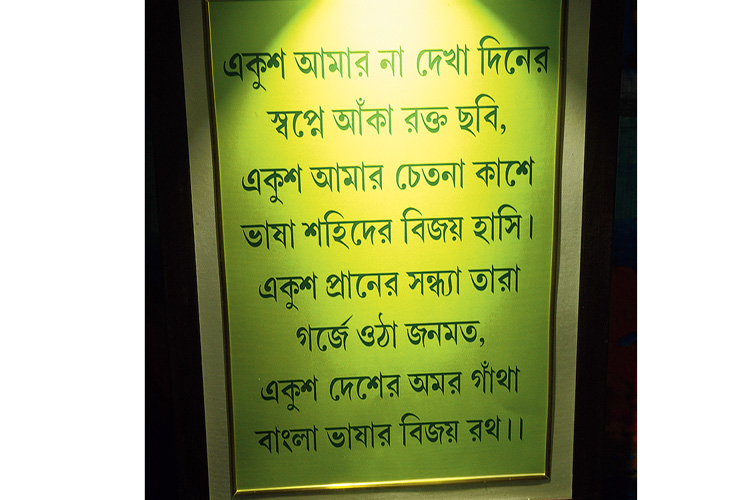 একুশ আমার না দেখা দিনের
স্বপ্নে আঁকা রক্ত ছবি,
একুশ আমার চেতনা কাশে
ভাষা শহিদের বিজয় হাসি।
একুশ প্রানের সন্ধ্যা তারা
গর্জে ওঠা জনমত,
একুশ দেশের অমর গাঁথা
বাংলা ভাষার বিজয় রথ।।